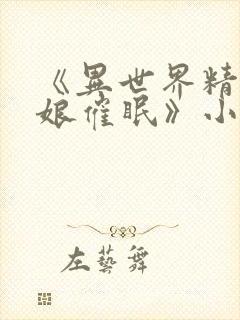 《異世界精
娘催眠》小
左藝舞